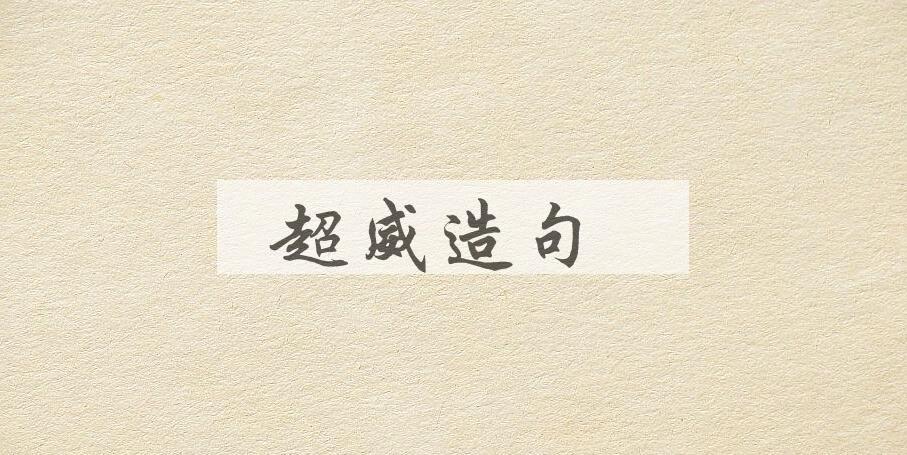 超威造句